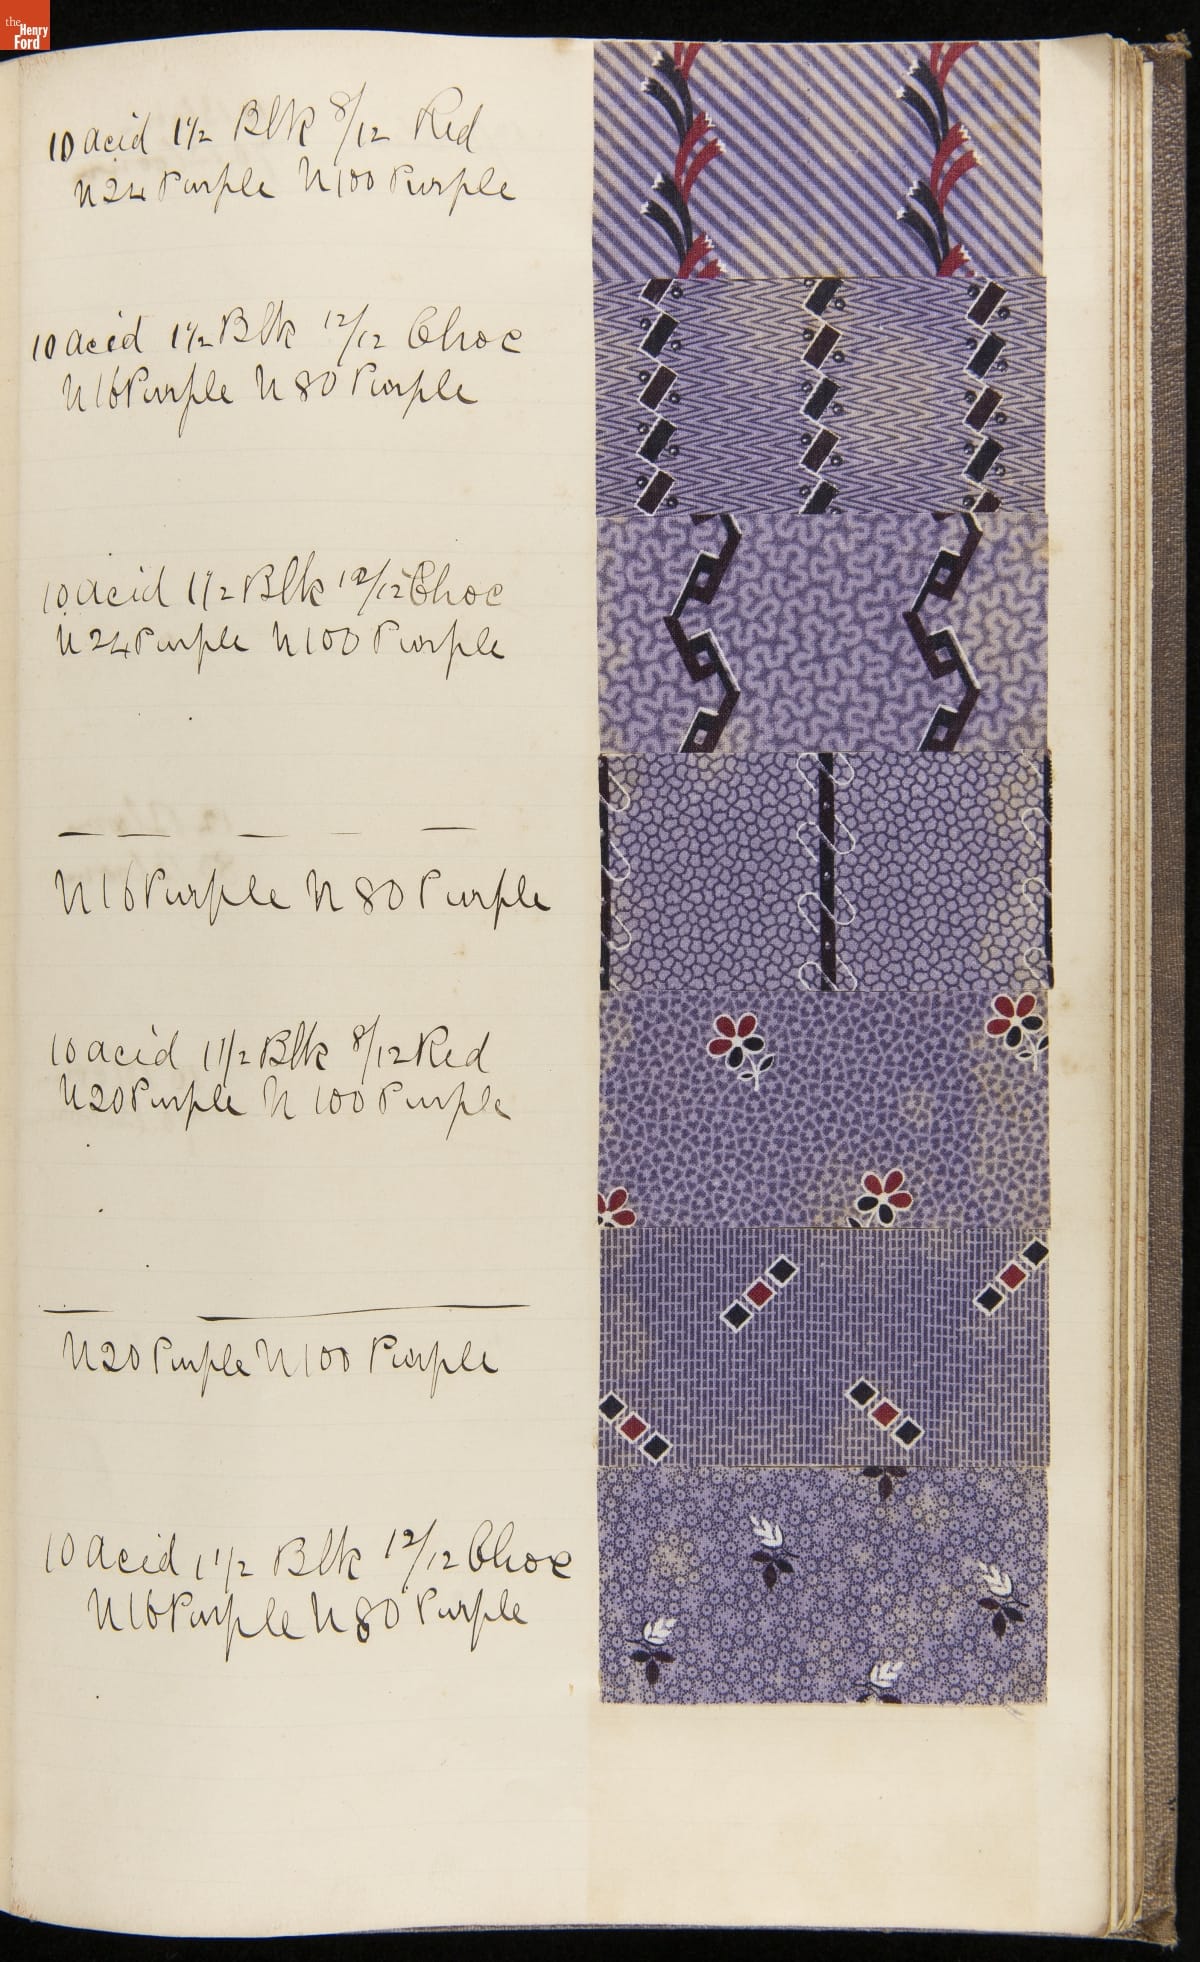 the
Henry
Ford
10 acid 1 1/2 Blk 8/12 Red
N24 Purple N100 Purple
10 acid 1 1/2 Blk 12/12 Choc
N16 Purple N80 Purple
10 acid 1 1/2 Blk 12/12 Choc
N24 Purple N100 Purple
N16 Purple N80 Purple
10 acid 1 1/2 Blk 8/12 Red
N20 Purple N100 Purple
N20 Purple N100 Purple
10 acid 1 1/2 Blk 12/12 Choc
N16 Purple N80 Purple